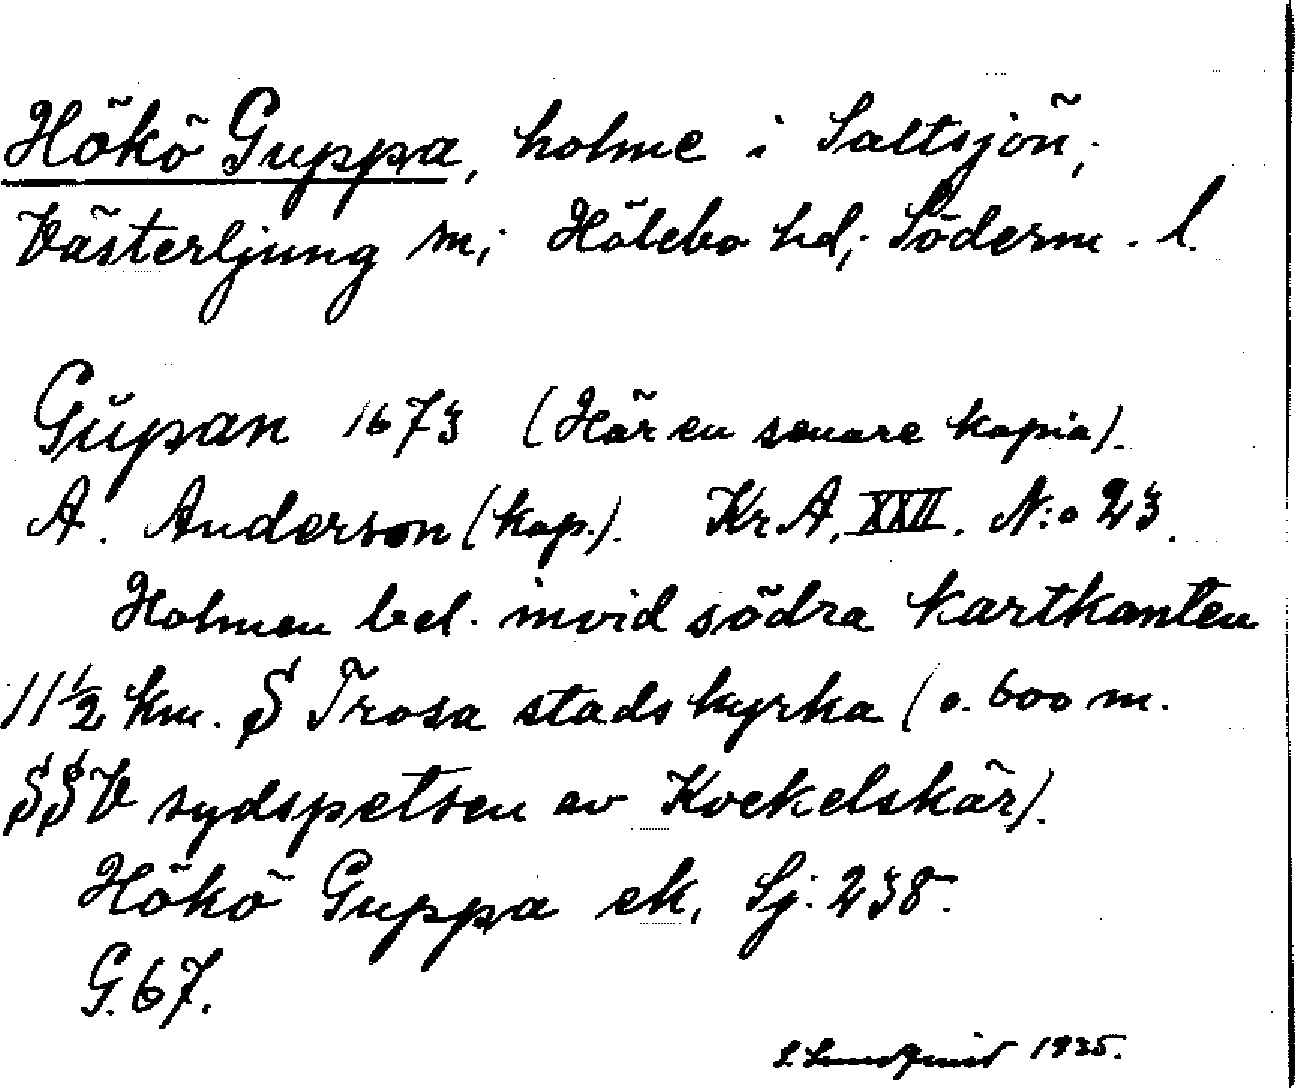 Hökö Guppa, holme i Saltsjön;
Västerljung sn; Hölebo hd; Söderm. l.
Gŭpan 1673 (Här en senare kopia).
A. Anderson (kop.). Kr. A. XXII. N:o 23.
Holmen bel. invid södra kartkanten
11½ km. S Trosa stadskyrka (o. 600 m.
SSV sydspetsen av Kockelskär).
Hökö Guppa ek, Sj: 238.
G. 67.
S. Lundquist 1935.